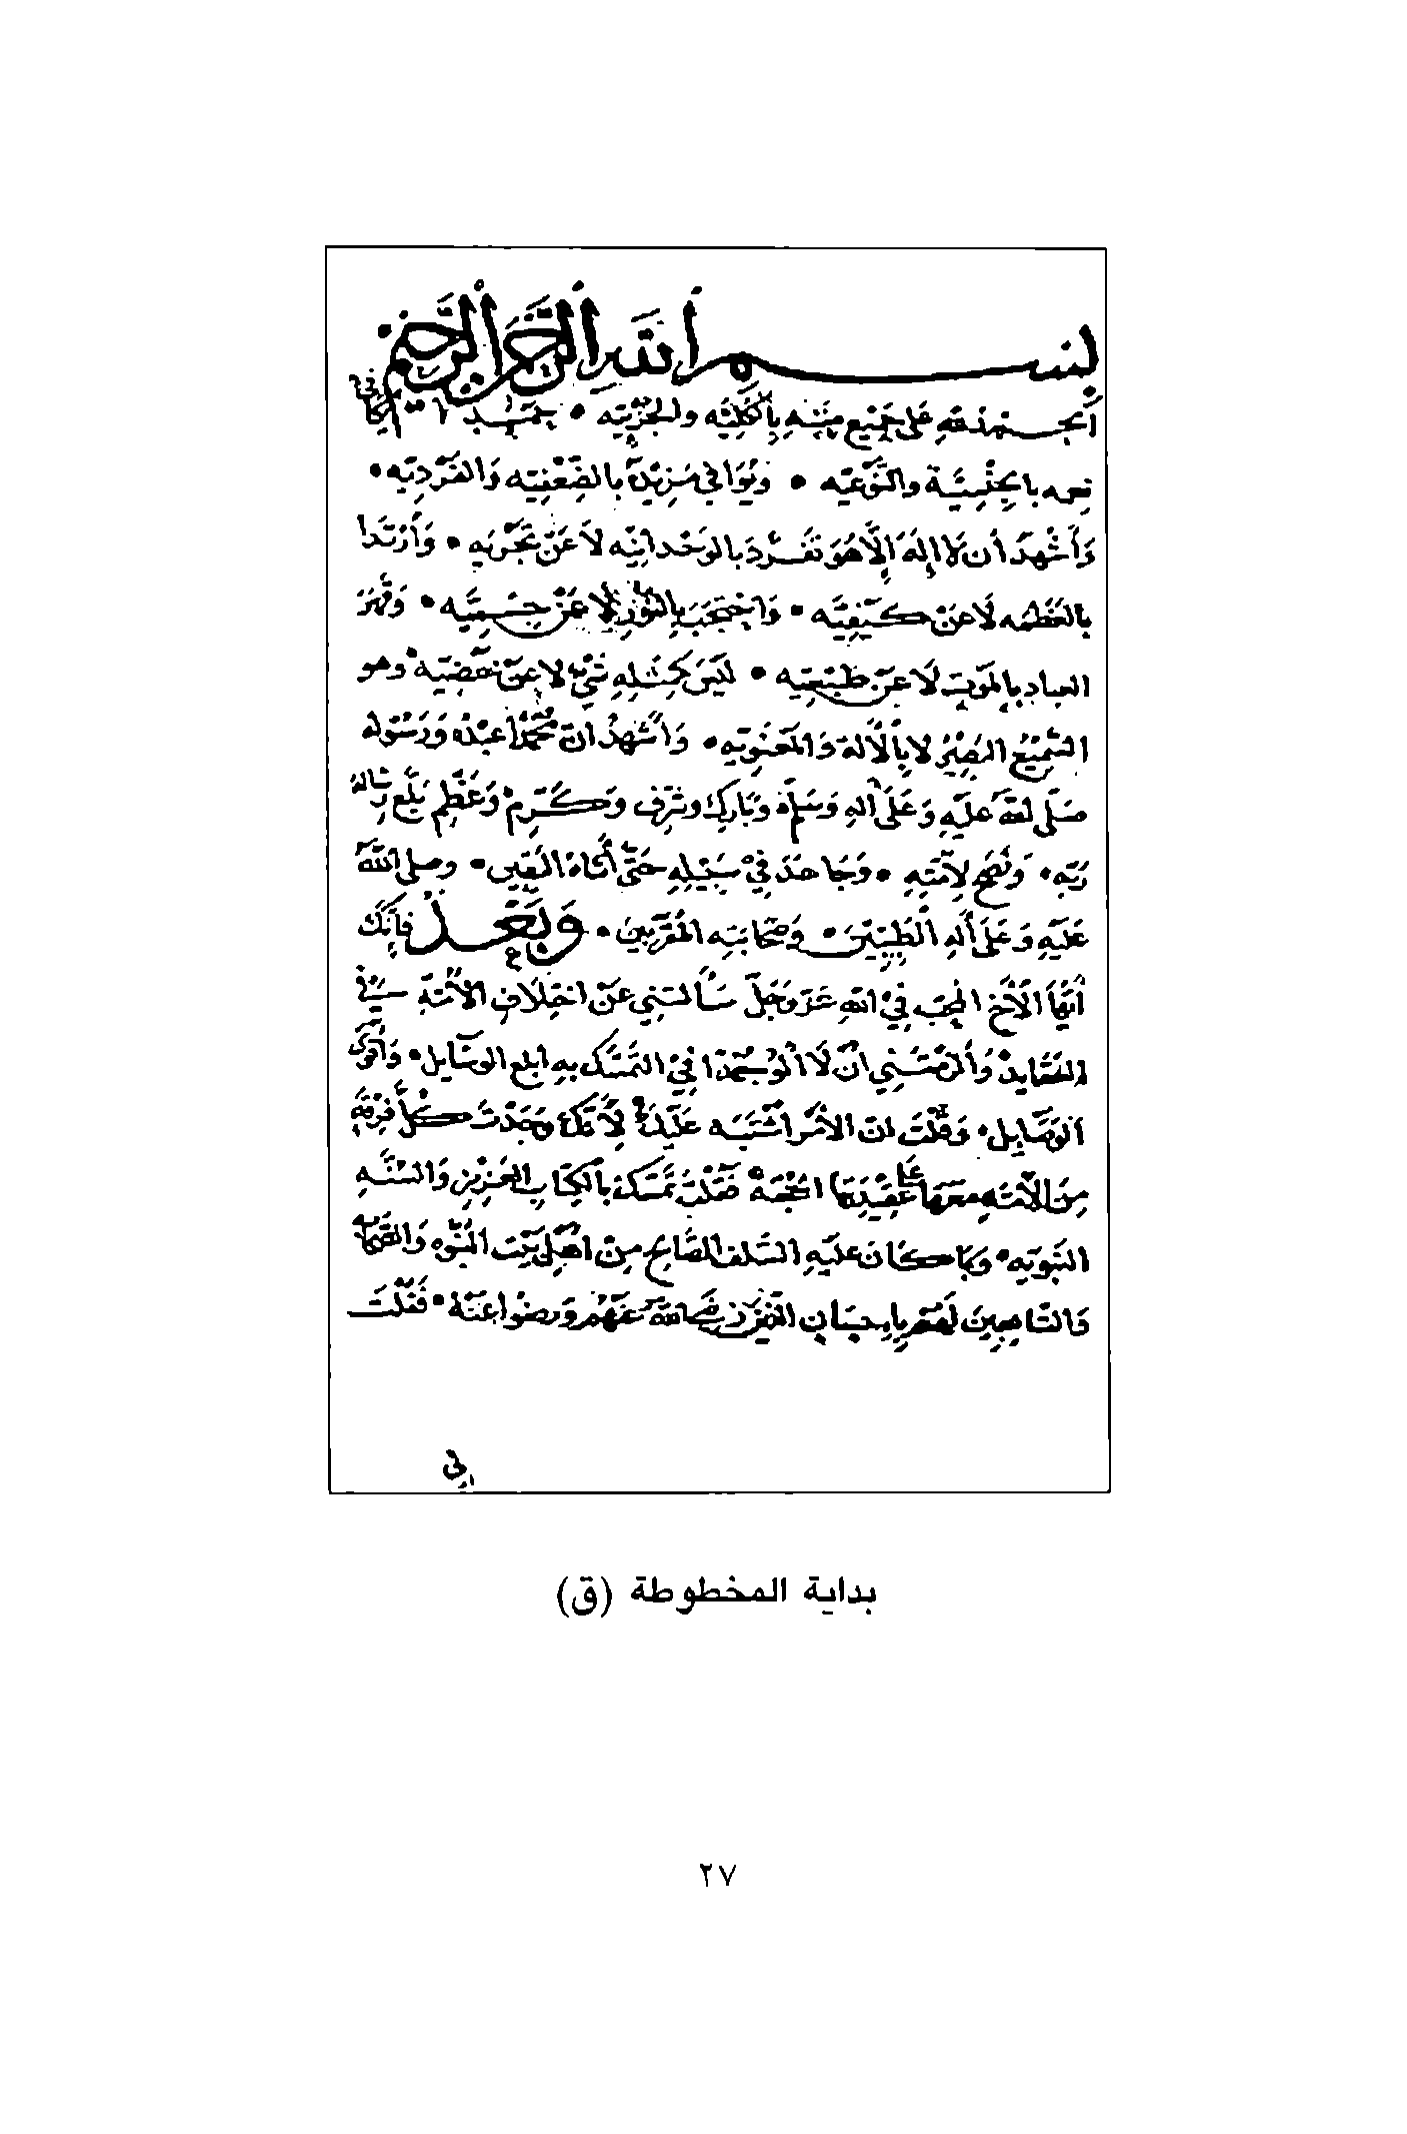 بسم الله الرحمن الرحيم
الحمد لله على جميع مننه بالكليّه والجزئيّه • يكافي
نعمه بالجنسيّة والنّوعيّه • ويُوافي مزيدَه بالضِّعْفيّه وَالفَرْديّه •
وَأَشْهَدَ أن لا إلَهَ إلَّا هُوَ تفَرَّدَ بالوَحْدانيّه لا عَنْ تجَرّيه • وَارْتَدا
بالعَظَمَه لَا عَن كيفيّه • وَاحْتجَبَ بِالنّورِ لا عَنْ جِسْميَّه • وَقهَرَ
العباد بالمَوتِ لَا عَنْ طَبْعيّه • لَيْسَ كمِثْلِهِ شَيْءٌ لا عن نقضيّه • وهو
السّمِيْعُ البَصِيْرُ لا بالْآلَة وَالمَعْنَويّه • وَأشهدُ انّ محمّدًا عبدُه وَرَسُوله
صَلّى الله عليه وَعَلَى آله وَسَلّم وَبَارك وشرّف وكَرّم وَعَظّم بَلّغ رِسَالة
رَبّه • وَنصَح لِأمّتِه • وَجَاهَدَ فِيْ سَبِيْلِهِ حَتّى أتَاهُ اليَقين • وصلى الله
عَلَيْهِ وَعَلَى آله الطَّيّبِيْن • وَصَحَابَتِه المُقَرَّبين • وَبَعْدُ فإنَّكَ
أيّهَا الْأَخ المحِبّ فِيْ الله عَزّ وَجَلّ سَألتني عَنْ اختِلَافِ الأمّة في
العقايد وَألزمْتَني انْ لَا أَلوْ جُهدًا فِيْ التمَسّك به ابلغ الوسَايل • وَأقوَى
الوصَايل • وَقُلْتَ انّ الأمْر اشتبَه عَلَيْكَ لأنّكَ وَجَدْتَ كلّ فِرقة
مِنَ الأمّة مَعَهَا عَلى عَقيْدَتهَا الحجّة فقُلْتُ تمَسّكْ بالكِتَابِ العَزيز وَالسُّنّه
النّبويّه • وَمَا كَانَ عليه السّلف الصّالح مِنْ اهْلِ بَيْت النّبُوّه وَالصّحَابة
وَالتّابعِين لهُم بإحسَانِ الّذين رَضي الله عَنْهُم وَرضُوا عنْهُ • فَقُلْتَ
لي
بداية المخطوطة (ق)
٢٧